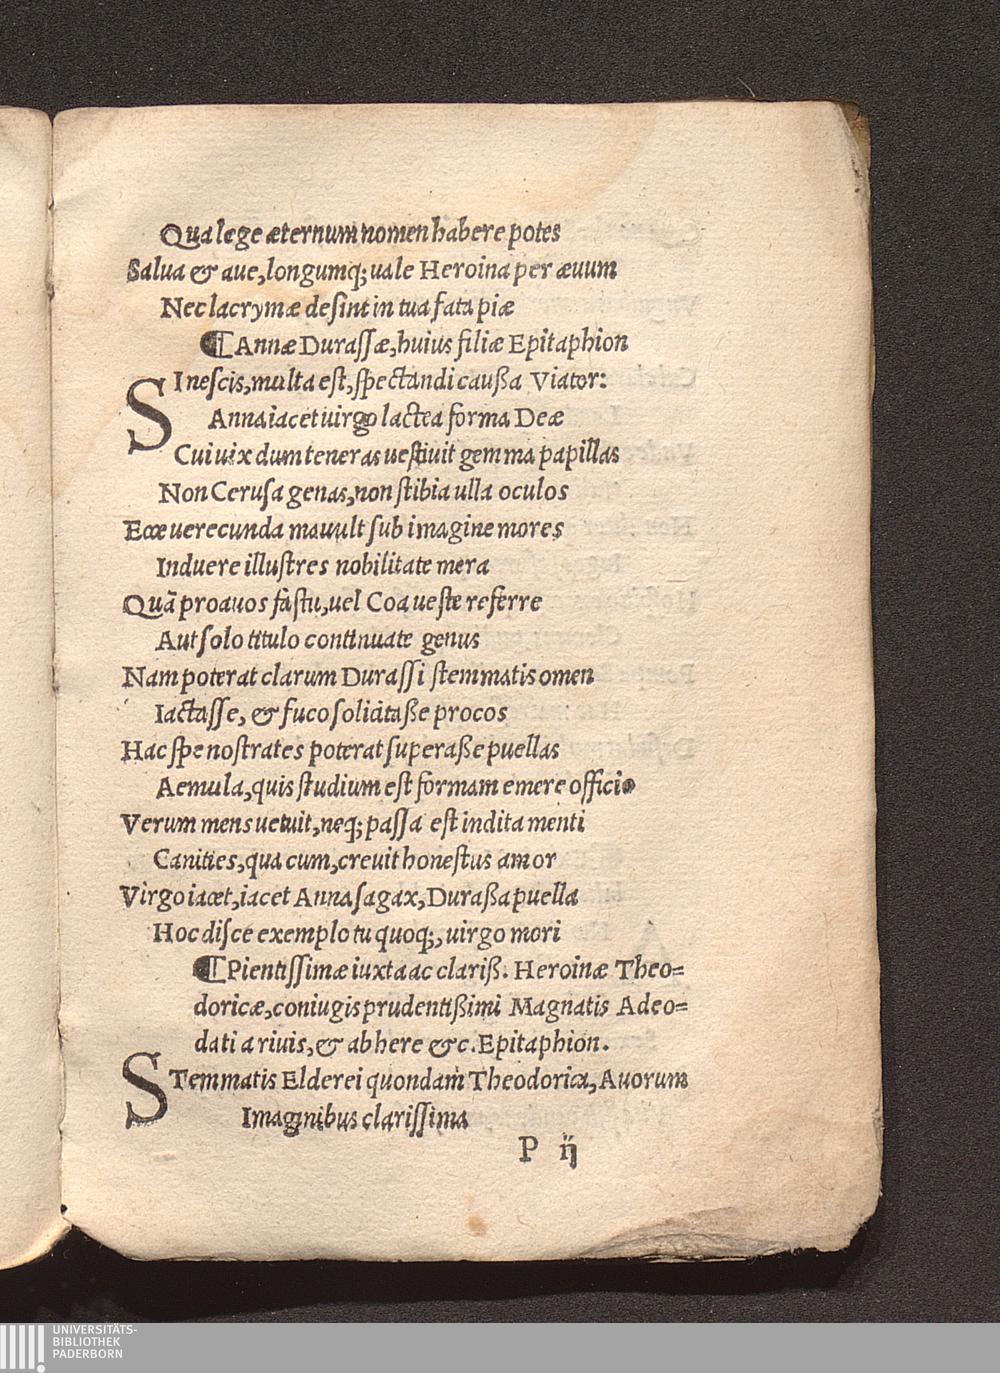 Qua lege æternum nomen habere potes
Salua & aue, longumq; uale Heroina per æuum
Nec lacrymæ desint in tua fata piæ
¶ Annæ Durassæ, huius filiæ Epitaphion
SI nescis, multa est, spectandi caußa Viator:
Anna iacet uirgo lactea forma Deæ
Cui uix dum teneras uestiuit gemma papillas
Non Cerusa genas, non stibia ulla oculos
Ecce uerecunda mauult sub imagine mores
Induere illustres nobilitate mera
Quã proauos fastu, uel Coa ueste referre
Aut solo titulo continuate genus
Nam poterat clarum Durassi stemmatis omen
Iactasse, & fuco solicitaße procos
Hac spe nostrates poterat superaße puellas
Aemula, quis studium est formam emere officio
Verum mens uetuit, neq; passa est indita menti
Canities, qua cum, creuit honestus amor
Virgo iacet, iacet Anna sagax, Duraßa puella
Hoc disce exemplo tu quoq;, uirgo mori
¶ Pientissimæ iuxta ac clariß. Heroinæ Theo=
doricæ, coniugis prudentißimi Magnatis Adeo=
dati a riuis, & ab here &c. Epitaphion.
STemmatis Elderei quondam Theodorica, Auorum
Imaginibus clarissima
P ij
UNIVERSITÄTS-
BIBLIOTHEK
PADERBORN